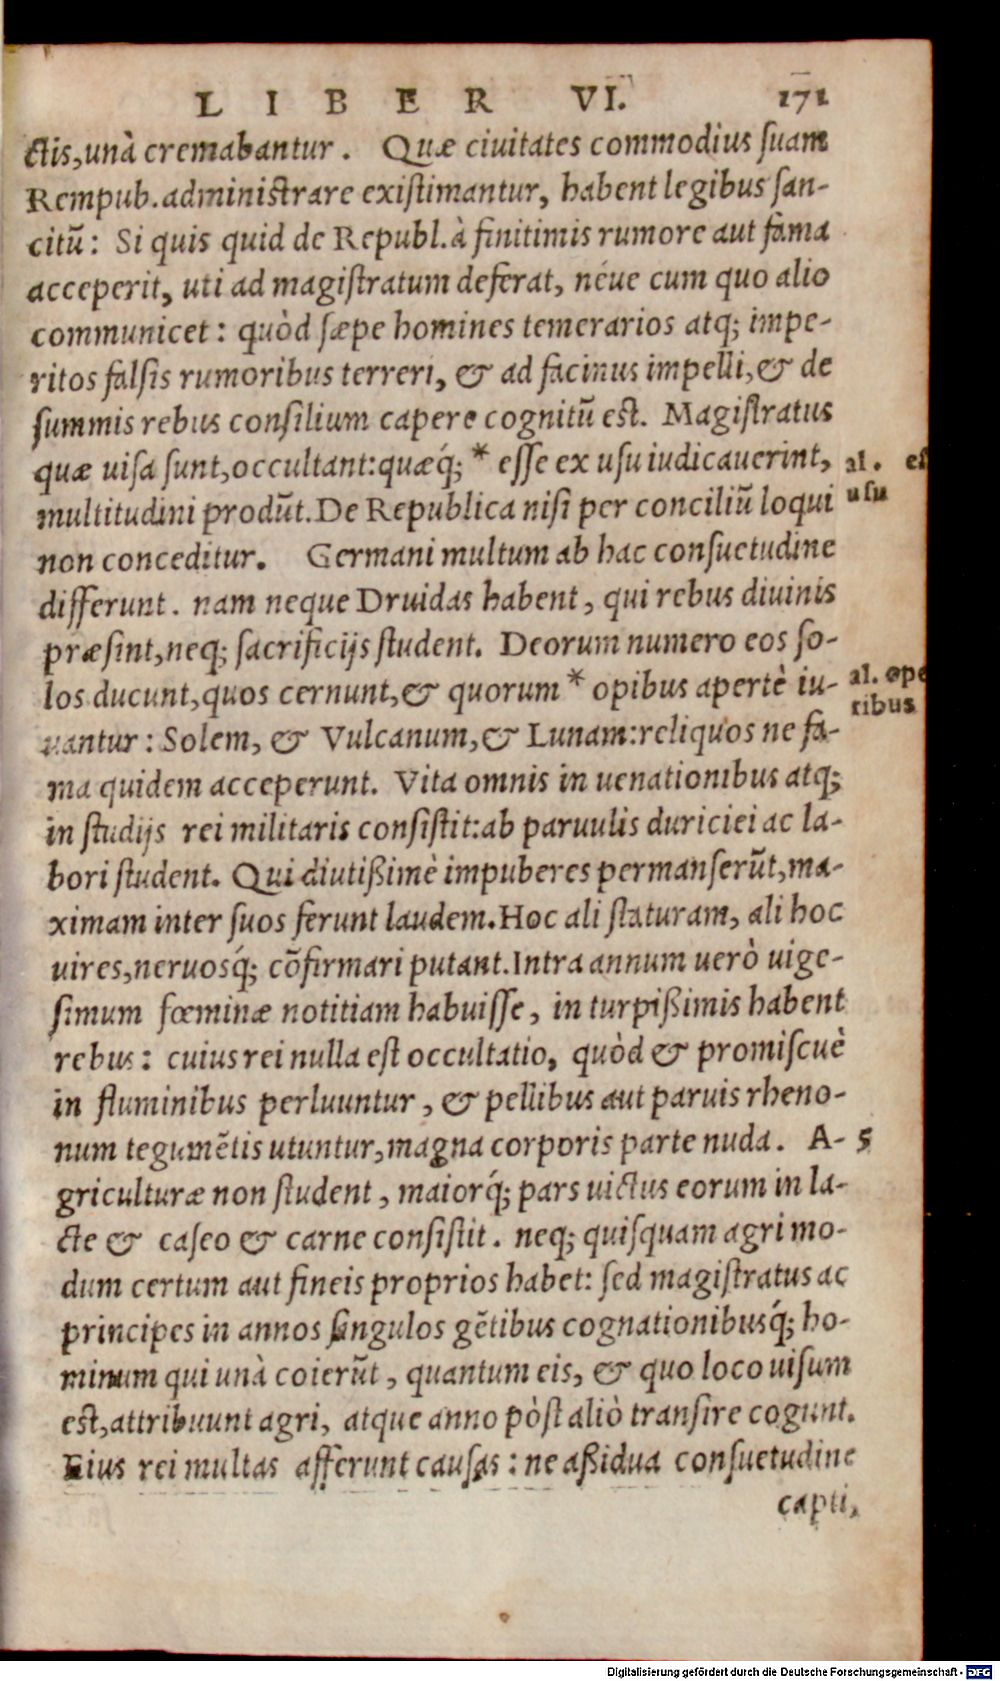 LIBER VI. 171
ctis,unà cremabantur. Quæ ciuitates commodius ſuam
Rempub.adminiſtrare exiſtimantur, habent legibus ſan-
citū: Si quis quid de Republ.à finitimis rumore aut fama
acceperit, uti ad magiſtratum deferat, néue cum quo alio
communicet: quòd ſæpe homines temerarios atq; impe-
ritos falſis rumoribus terreri, & ad facinus impelli,& de
ſummis rebus conſilium capere cognitū eſt. Magiſtratus
quæ uiſa ſunt,occultant:quæq́; * eſſe ex uſu iudicauerint,
multitudini produ͞t.De Republica niſi per conciliū loqui
non conceditur. Germani multum ab hac conſuetudine
differunt. nam neque Druidas habent, qui rebus diuinis
præſint,neq; ſacrificijs ſtudent. Deorum numero eos ſo-
los ducunt,quos cernunt,& quorum * opibus apertè iu-
uantur: Solem, & Vulcanum,& Lunam:reliquos ne fa-
ma quidem acceperunt. Vita omnis in uenationibus atq;
in ſtudijs rei militaris conſiſtit:ab paruulis duriciei ac la-
bori ſtudent. Qui diutißimè impuberes permanſerūt,ma-
ximam inter ſuos ferunt laudem.Hoc ali ſtaturam, ali hoc
uires,neruosq́; cōfirmari putant.Intra annum uerò uige-
ſimum fœminæ notitiam habuiſſe, in turpißimis habent
rebus: cuius rei nulla eſt occultatio, quòd & promiſcuè
in fluminibus perluuntur, & pellibus aut paruis rheno-
num tegumētis utuntur,magna corporis parte nuda. A-
griculturæ non ſtudent, maiorq́; pars uictus eorum in la-
cte & caſeo & carne conſiſtit. neq; quiſquam agri mo-
dum certum aut fineis proprios habet: ſed magiſtratus ac
principes in annos ſingulos gētibus cognationibusq́; ho-
minum qui unà coierūt, quantum eis, & quo loco uiſum
eſt,attribuunt agri, atque anno pòſt aliò tranſire cogunt.
Eius rei multas afferunt cauſas: ne aßidua conſuetudine
capti,
al. eſ
uſu
al. ope
ribus
5
Digitalisierung gefördert durch die Deutsche Forschungsgemeinschaft - DFG